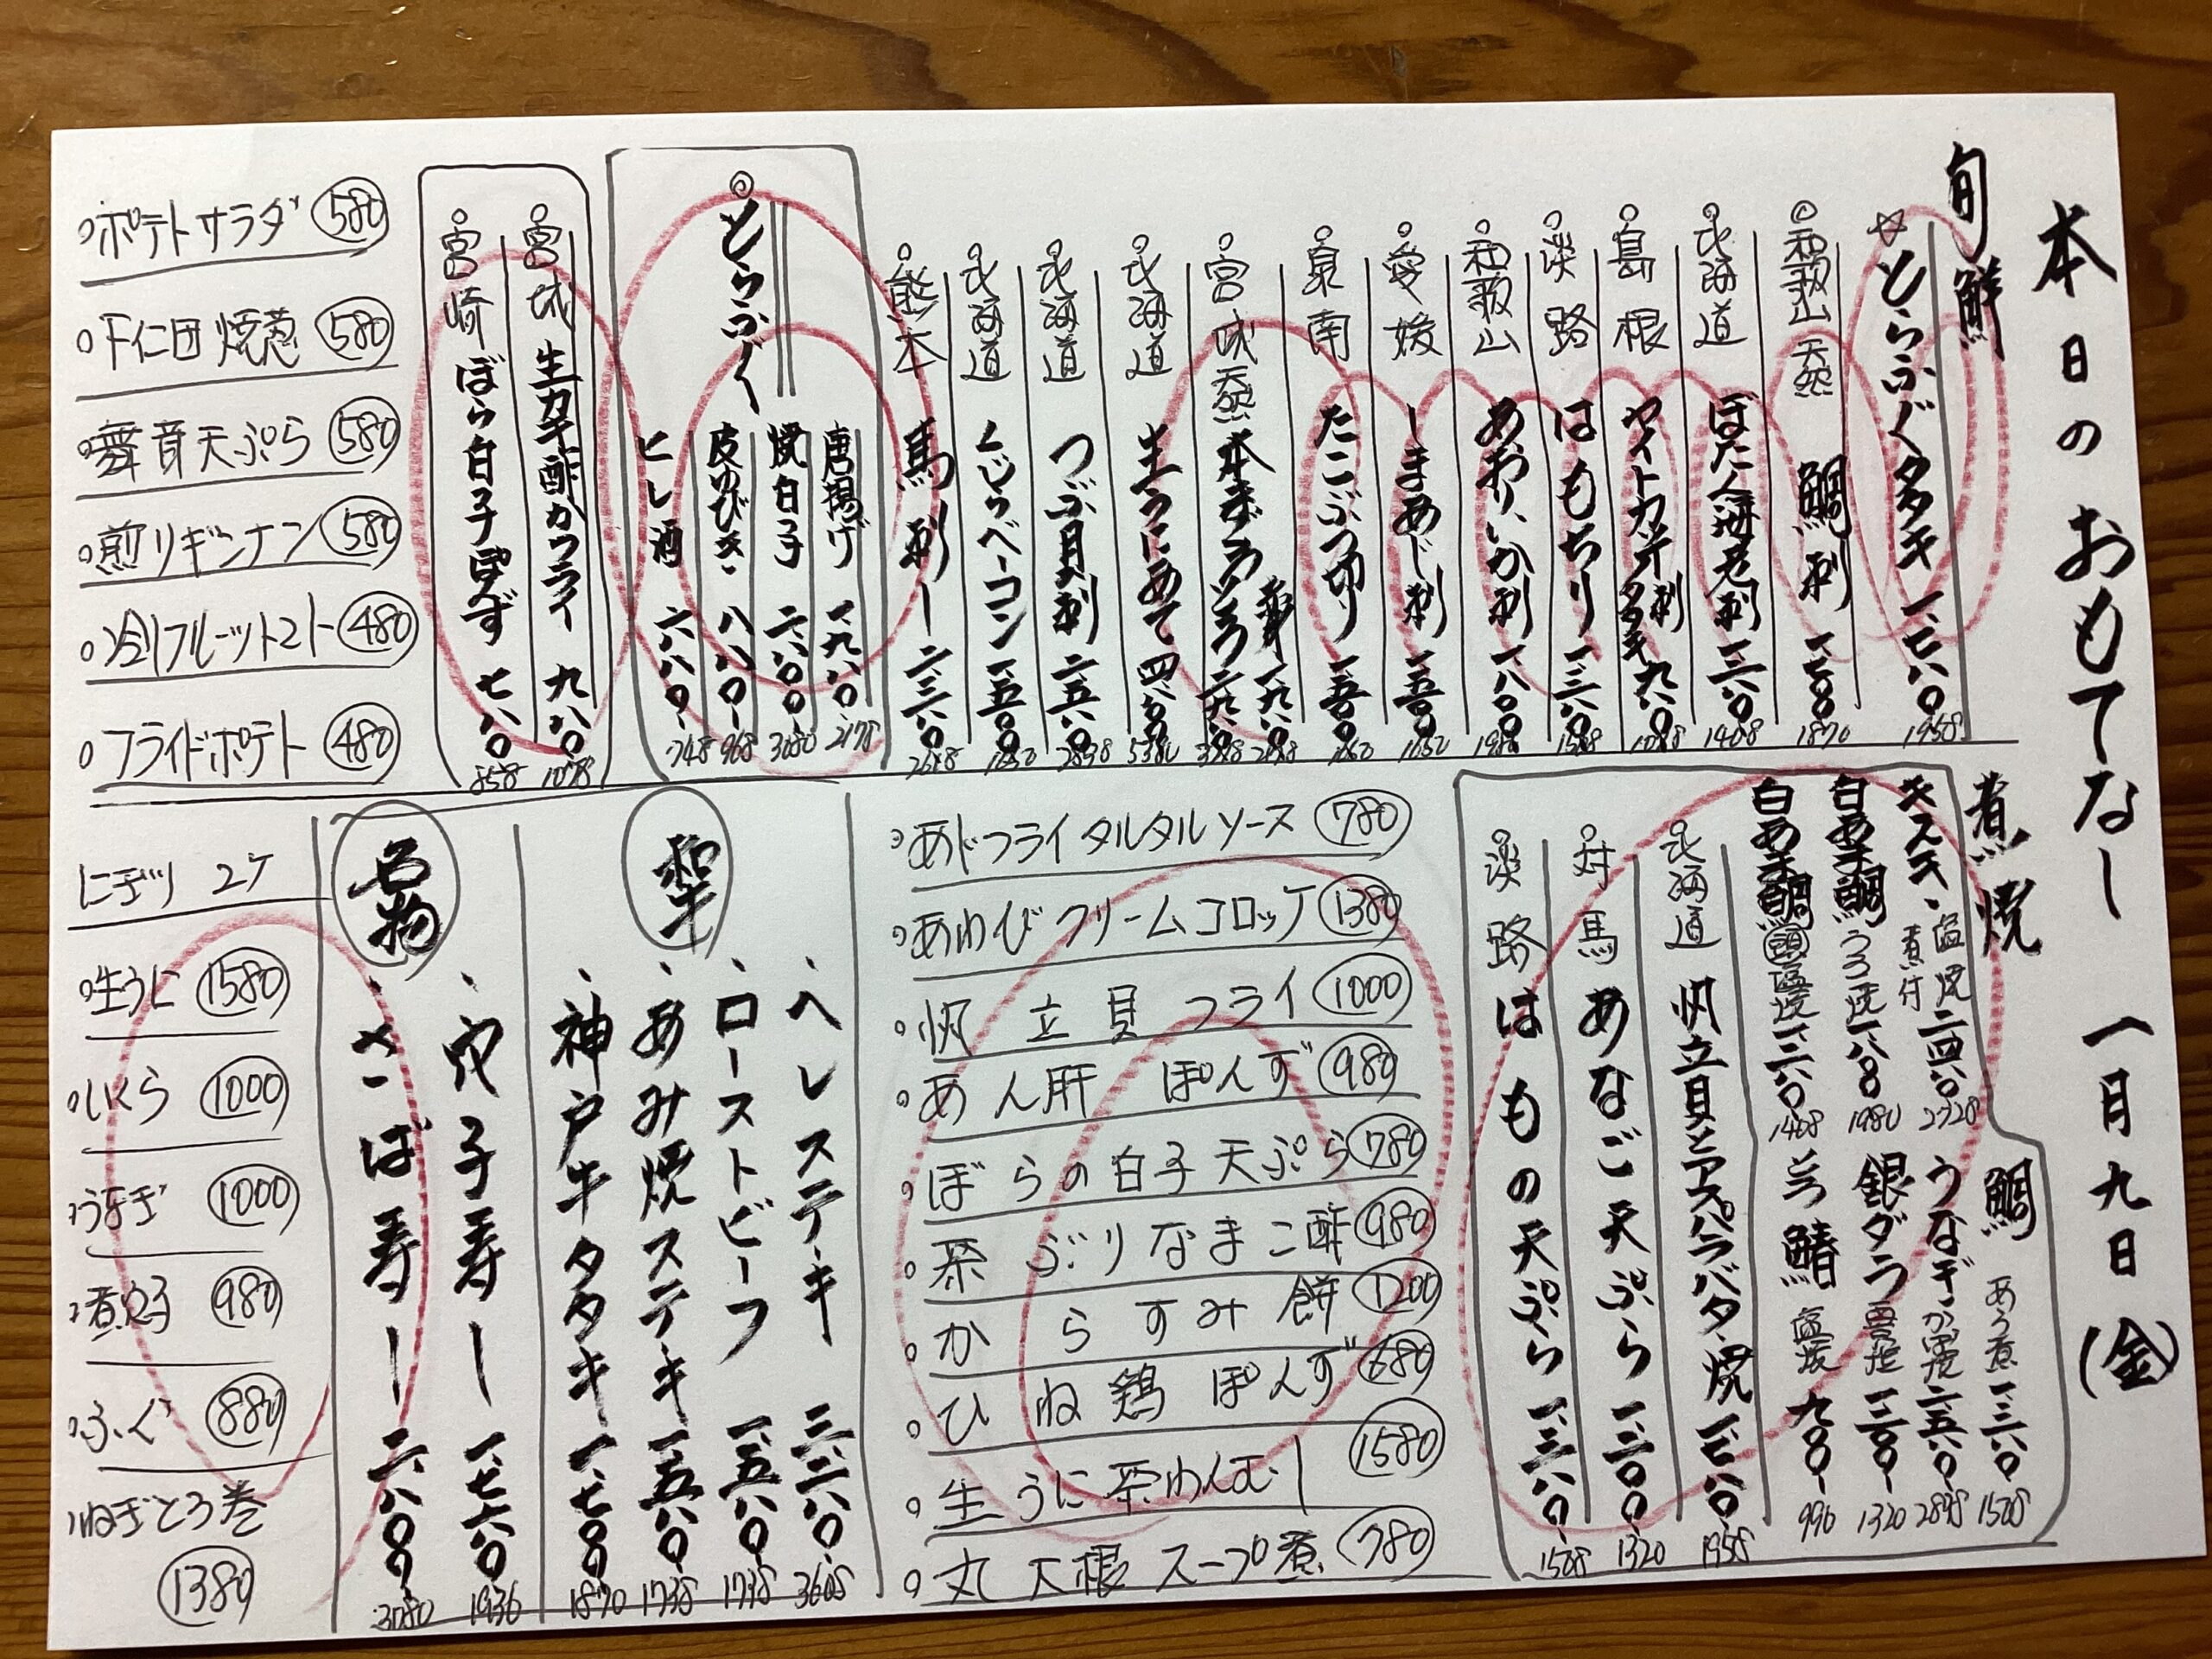 本日のおもてなし 一月九日(金)
旬鮮
☆とらふぐタタキ 一、七八〇 1958
◎和歌山 天然 鯛刺 一、七〇〇 1870
北海道 ぼたん海老刺 一、二八〇 1408
島根 ヤイトカツオ刺 タタキ 九八〇 1078
淡路 はもちり 一、三八〇 1518
和歌山 あおりいか刺 一、八〇〇 1980
愛媛 しまあじ刺 一、五〇〇 1650
泉南 たこぶつ切り 一、五〇〇 1650
宮城 天然 本まぐろ 赤身 一、九八〇 2178
とろ 二、九八〇 3278
北海道 生うにあて 四、八〇〇 5380
北海道 つぶ貝刺 二、五八〇 2838
北海道 くじらベーコン 一、五〇〇 1650
熊本 馬刺し 二、三八〇 2618
◎とらふぐ
唐揚げ 一、九八〇 2178
焼白子 二、八〇〇 3080
皮ゆびき 八八〇 968
ヒレ酒 六八〇 748
宮城 生カキ酢カフライ 九八〇 1078
宮崎 ぼら白子ぽんず 七八〇 858
ポテトサラダ 580
下仁田焼葱 580
舞茸天ぷら 580
煎リギンナン 580
冷フルーツトマト 480
フライドポテト 480
煮焼
キスキ 塩焼 煮付 二、四八〇 2728
白あま鯛 うろこ焼 一、八〇〇 1980
白あま鯛 頭 塩焼 一、二八〇 1408
鯛 あら煮 一、三八〇 1518
うなぎ かば焼 二、五八〇 2838
銀ダラ 西京焼 一、二〇〇 1320
とろ鯖 塩焼 九〇〇 990
北海道 帆立貝とアスパラバター焼 一、七八〇 1958
対馬 あなご天ぷら 一、二〇〇 1320
淡路 はもの天ぷら 一、三八〇 1518
あじフライタルタルソース 780
あわびクリームコロッケ 1380
帆立貝フライ 1000
あん肝 ぽんず 980
ぼらの白子天ぷら 780
茶ぶりなまこ酢 980
からすみ餅 1200
ひね鶏 ぽんず 680
生うに茶わんむし 1580
丸大根スープ煮 780
和牛
ヘレステーキ 三、二八〇 3608
ローストビーフ 一、五八〇 1738
あみ焼ステーキ 一、五八〇 1738
神戸牛タタキ 一、七〇〇 1870
名物
穴子寿し 一、七六〇 1936
さば寿し 二、八〇〇 3080
にぎり 2ケ
生うに 1580
いくら 1000
うなぎ 1000
煮穴子 980
ふぐ 880
ねぎとろ巻 1380